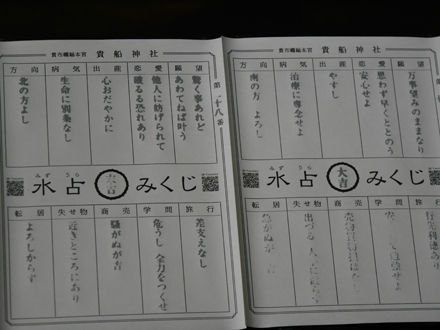 貴布禰総本宮 貴船神社
願望 恋愛 出産 病気 方向
万事望みのままなり
思わず早くととのう
安心せよ
やすし
治療に専念せよ
南の方 よろし
みず うら
水占 大吉 みくじ
旅行 学問 商売 失せ物 転居
貴布禰総本宮 貴船神社
第二十八番
願望 恋愛 出産 病気 方向
驚く事あれど
あわてねば叶う
他人に妨げられて
破るる恐れあり
心おだやかに
生命に別条なし
北の方よし
みず うら
水占 吉 みくじ
旅行 学問 商売 失せ物 転居
差支えなし
危うし 全力をつくせ
騒がぬが吉
近きところにあり
よろしからず